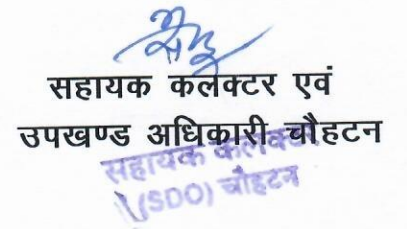 सहायक कलेक्टर एवं
उपखण्ड अधिकारी चौहटन
सहायक कलेक्टर
(SDO) चौहटन